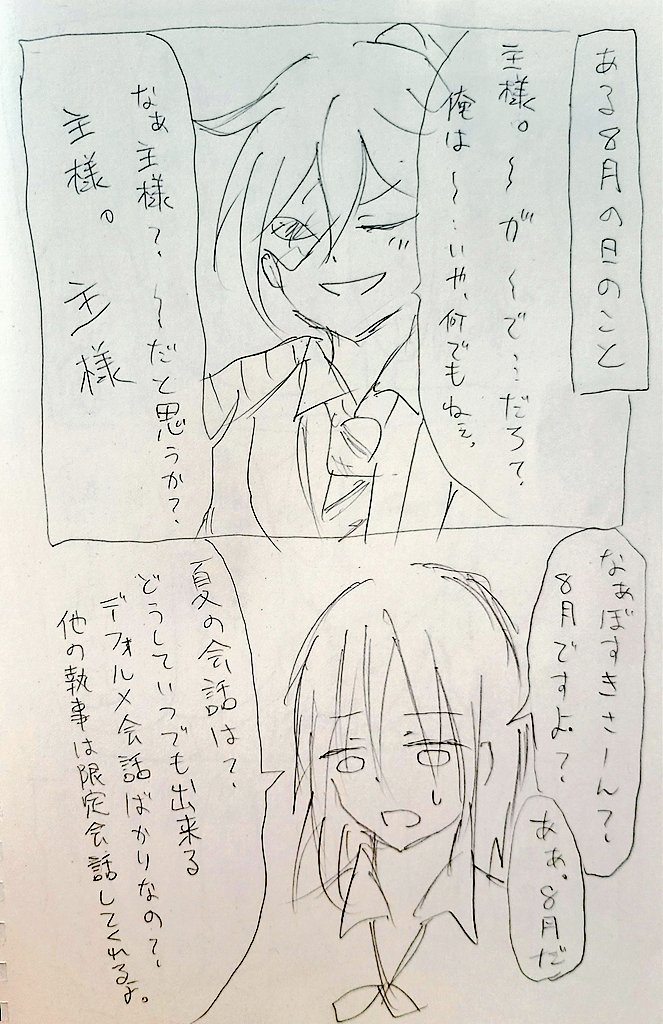 ある8月の日のこと
主様。〜が〜で…だろ？
俺は〜…いや、何でもねぇ。
なぁ主様？、〜だと思うか？
主様。主様
なぁぼすきさーん？
8月ですよ？
ああ。8月だ
夏の会話は？
どうしていつでも出来る
デフォルメ会話ばかりなの？
他の執事は限定会話してくれるよ。